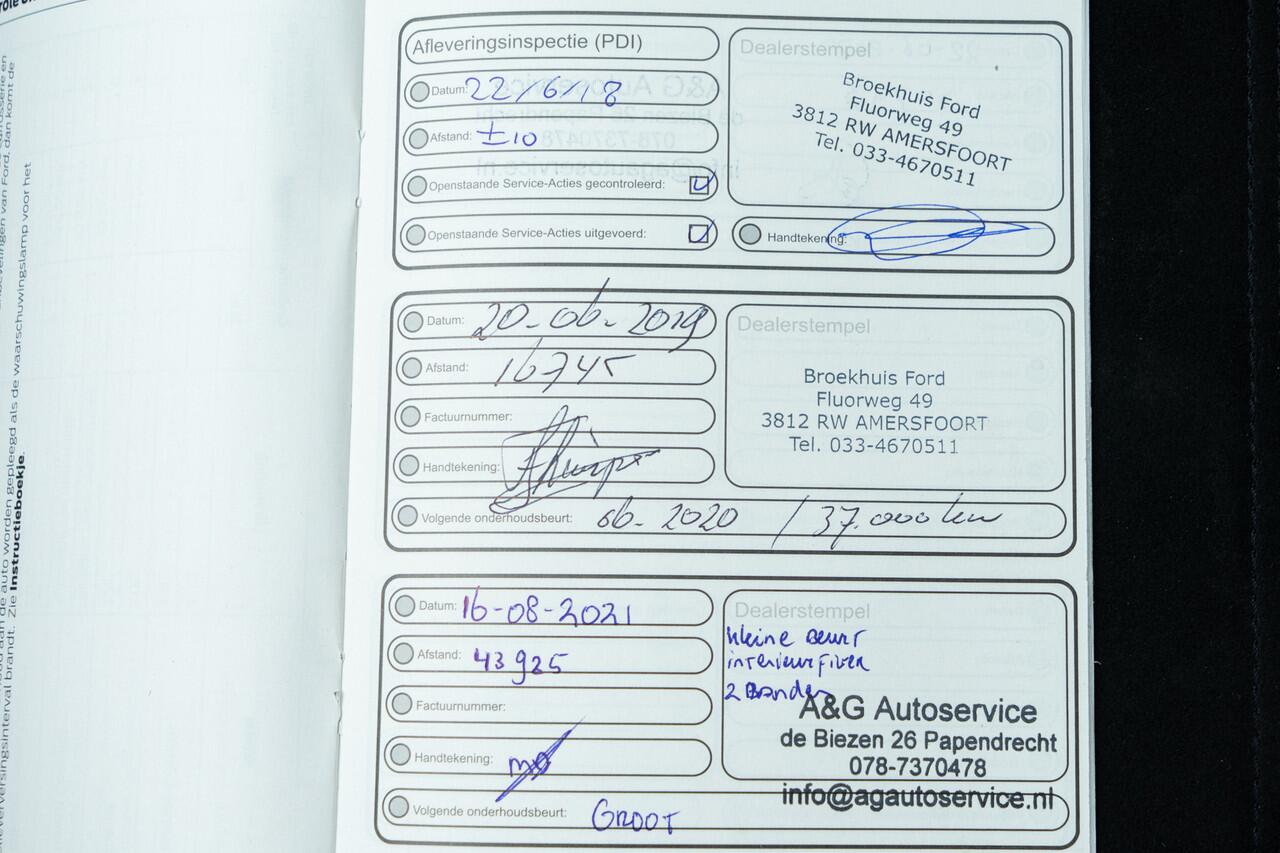 Afleveringsinspectie (PDI)
Datum: 22/6/18
Afstand: ±10
Openstaande Service-Acties gecontroleerd:
Openstaande Service-Acties uitgevoerd:
Dealerstempel
Broekhuis Ford
Fluorweg 49
3812 RW AMERSFOORT
Tel. 033-4670511
Handtekening:
Datum: 20-06-2019
Afstand: 16745
Factuurnummer:
Handtekening:
Volgende onderhoudsbeurt: 06-2020 / 37.000 km
Dealerstempel
Broekhuis Ford
Fluorweg 49
3812 RW AMERSFOORT
Tel. 033-4670511
Datum: 16-08-2021
Afstand: 43925
Factuurnummer:
Handtekening:
Volgende onderhoudsbeurt: GROOT
Dealerstempel
kleine beurt
interieurfilter
2 Banden
A&G Autoservice
de Biezen 26 Papendrecht
078-7370478
info@agautoservice.nl
aan de auto worden gepleegd als de waarschuwingslamp voor het
verversingsinterval brandt. Zie Instructieboekje.